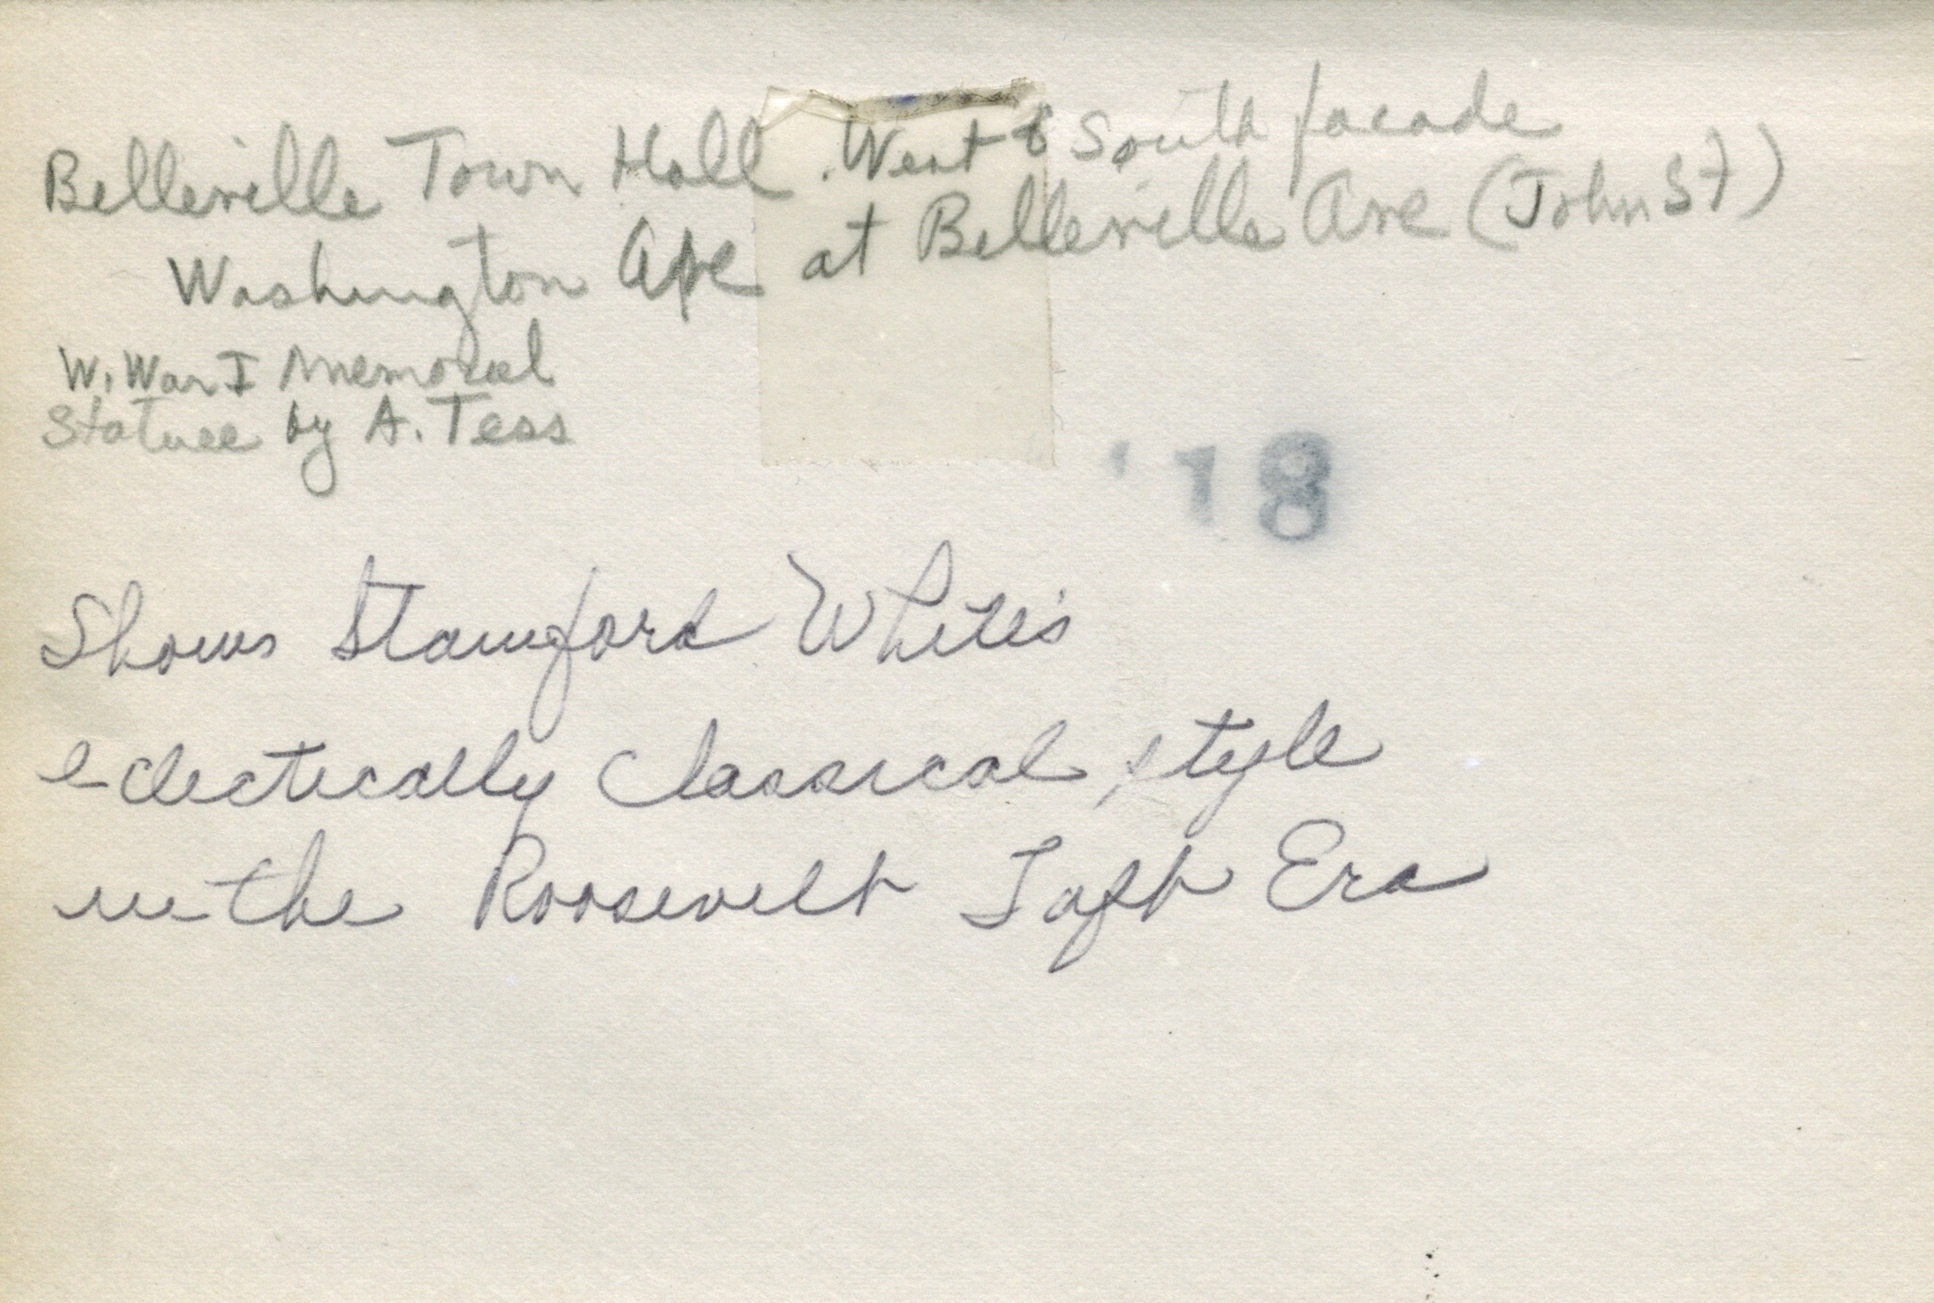 Belleville Town Hall. West & South facade
Washington Ave at Belleville Ave (John St)
W. War I Memorial
Statuee by A. Tess
'18
Shows Stamford White's
eclectically classical style
in the Roosevelt Taft Era